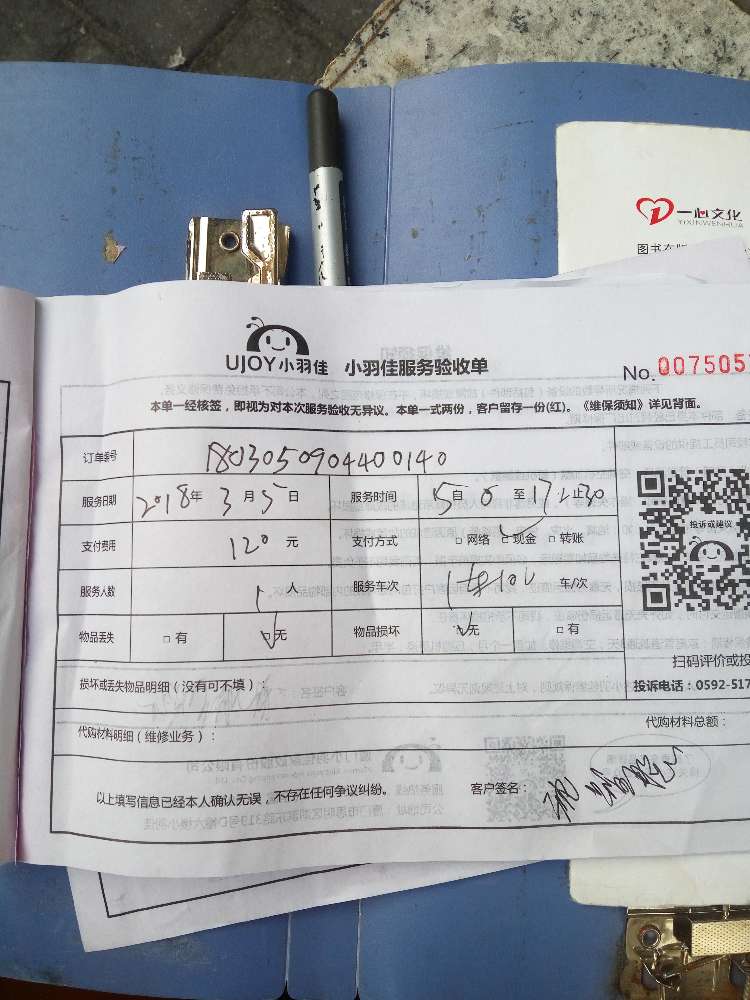 一心文化
YIXINWENHUA
图书在版
UJOY小羽佳 小羽佳服务验收单
No. 0075057
本单一经核签，即视为对本次服务验收无异议。本单一式两份，客户留存一份(红)。《维保须知》详见背面。
订单编号 1803050904400140
服务日期 2018年 3月5日 服务时间 至17
支付费用 120 元 支付方式 □网络 □现金 □转账
服务人数 1 人 服务车次 车/次
物品丢失 □有 □无 物品损坏 □无 □有
投诉或建议
扫码评价或投
损坏或丢失物品明细（没有可不填）：
投诉电话：0592-517
代购材料明细（维修业务）：
代购材料总额：
以上填写信息已经本人确认无误，不存在任何争议纠纷。
客户签名：